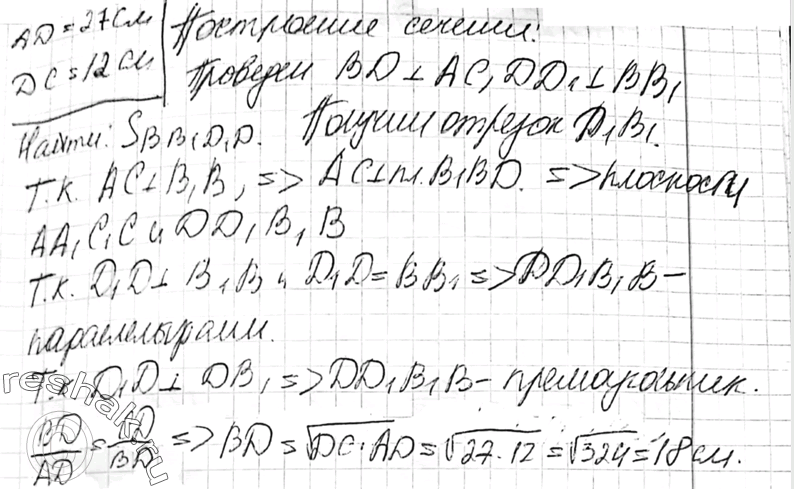 AD = 27 см
DC = 12 см
Построение сечения:
Проведем BD ⊥ AC, DD₁ ⊥ BB₁
Найти: S BB₁D₁D. Получим отрезок D₁B₁.
Т.к. AC ⊥ B₁B, => AC ⊥ пл. B₁BD. => плоскости
AA₁C₁C и DD₁B₁B
Т.к. D₁D ⊥ B₁B и D₁D = BB₁ => DD₁B₁B –
параллелограмм.
Т.к. D₁D ⊥ DB, => DD₁B₁B – прямоугольник.
BD/AD = /BD => BD = √DC·AD = √27·12 = √324 = 18 см.
reshak.ru